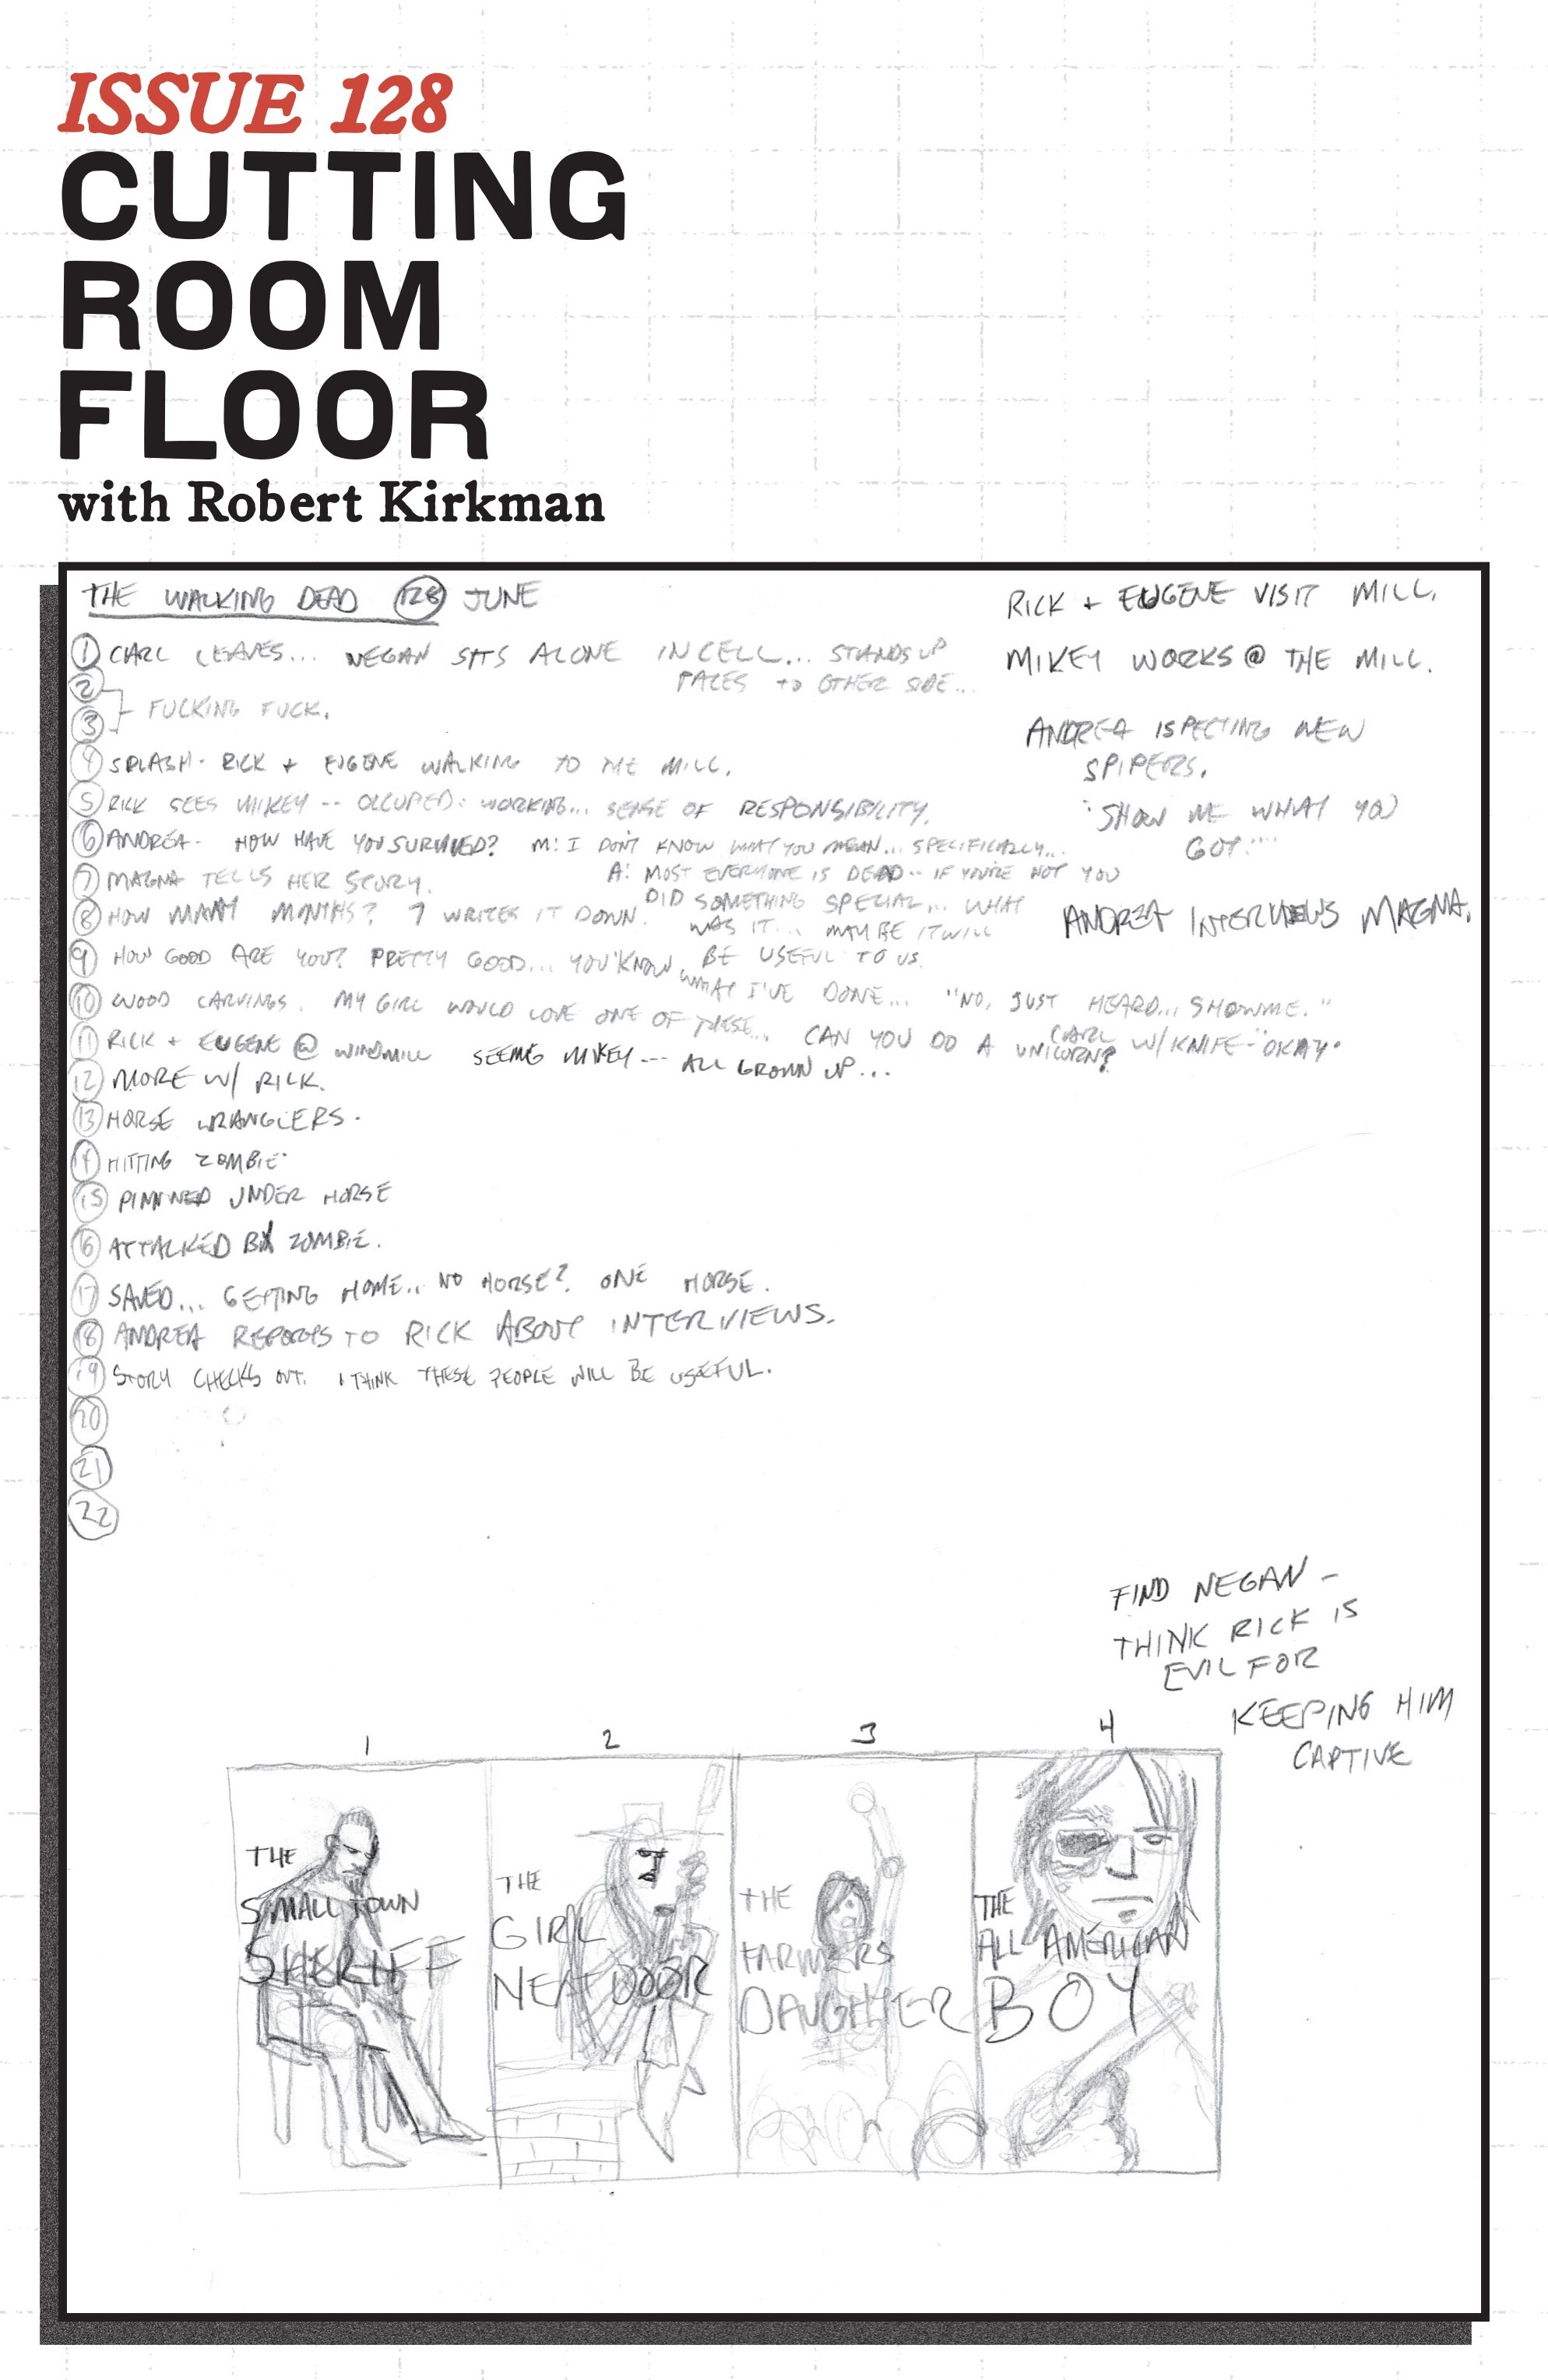 ISSUE 128
CUTTING
ROOM
FLOOR
with Robert Kirkman
THE WALKING DEAD 128 JUNE
1 CARL LEAVES... NEGAN SITS ALONE IN CELL... STANDS UP
PACES TO OTHER SIDE...
2
3 FUCKING FUCK.
4 SPLASH- RICK + EUGENE WALKING TO THE MILL.
5 RICK SEES MIKEY -- OCCUPED: WORKING... SENSE OF RESPONSIBILITY.
6 ANDREA- HOW HAVE YOU SURVIVED? M: I DON'T KNOW WHAT YOU MEAN... SPECIFICALLY...
A: MOST EVERYONE IS DEAD.. IF YOU'RE NOT YOU
DID SOMETHING SPECIAL... WHAT
WAS IT... MAYBE IT WILL
BE USEFUL TO US.
7 MAGNA TELLS HER STORY.
8 HOW MANY MONTHS? 7 WRITES IT DOWN.
9 HOW GOOD ARE YOU? PRETTY GOOD... YOU KNOW
WHAT I'VE DONE... "NO, JUST HEARD... SHOW ME."
10 WOOD CARVINGS. MY GIRL WOULD LOVE ONE OF THESE... CAN YOU DO A UNICORN?
CARL W/ KNIFE- "OKAY."
11 RICK + EUGENE @ WINDMILL SEEING MIKEY --- ALL GROWN UP...
12 MORE W/ RICK.
13 HORSE WRANGLERS.
14 HITTING ZOMBIE.
15 PINNED UNDER HORSE
16 ATTACKED BY ZOMBIE.
17 SAVED... GETTING HOME.. NO HORSE? ONE HORSE.
18 ANDREA REPORTS TO RICK ABOUT INTERVIEWS.
19 STORY CHECKS OUT. I THINK THESE PEOPLE WILL BE USEFUL.
20
21
22
RICK + EUGENE VISIT MILL.
MIKEY WORKS @ THE MILL.
ANDREA ISPECTING NEW
SPIPERS.
"SHOW ME WHAT YOU
GOT."
ANDREA INTERVIEWS MAGNA.
FIND NEGAN -
THINK RICK IS
EVIL FOR
KEEPING HIM
CAPTIVE
1
2
3
4
THE
SMALL TOWN
SHERIFF
THE
GIRL
NEXT DOOR
THE
FARMERS
DAUGHTER
THE
ALL AMERICAN
BOY